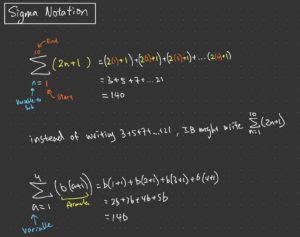 Sigma Notation
End
10
∑ (2n+1) = (2(1)+1)+(2(2)+1)+(2(3)+1)+...(2(10)+1)
n = 1
Variable to Sub
Start
= 3+5+7+...21
= 140
instead of writing 3+5+7+...+21, IB might write ∑ (2n+1)
10
n=1
4
∑ (b(a+1)) = b(1+1)+b(2+1)+b(3+1)+b(4+1)
a = 1
formula
variable
= 2b+3b+4b+5b
= 14b